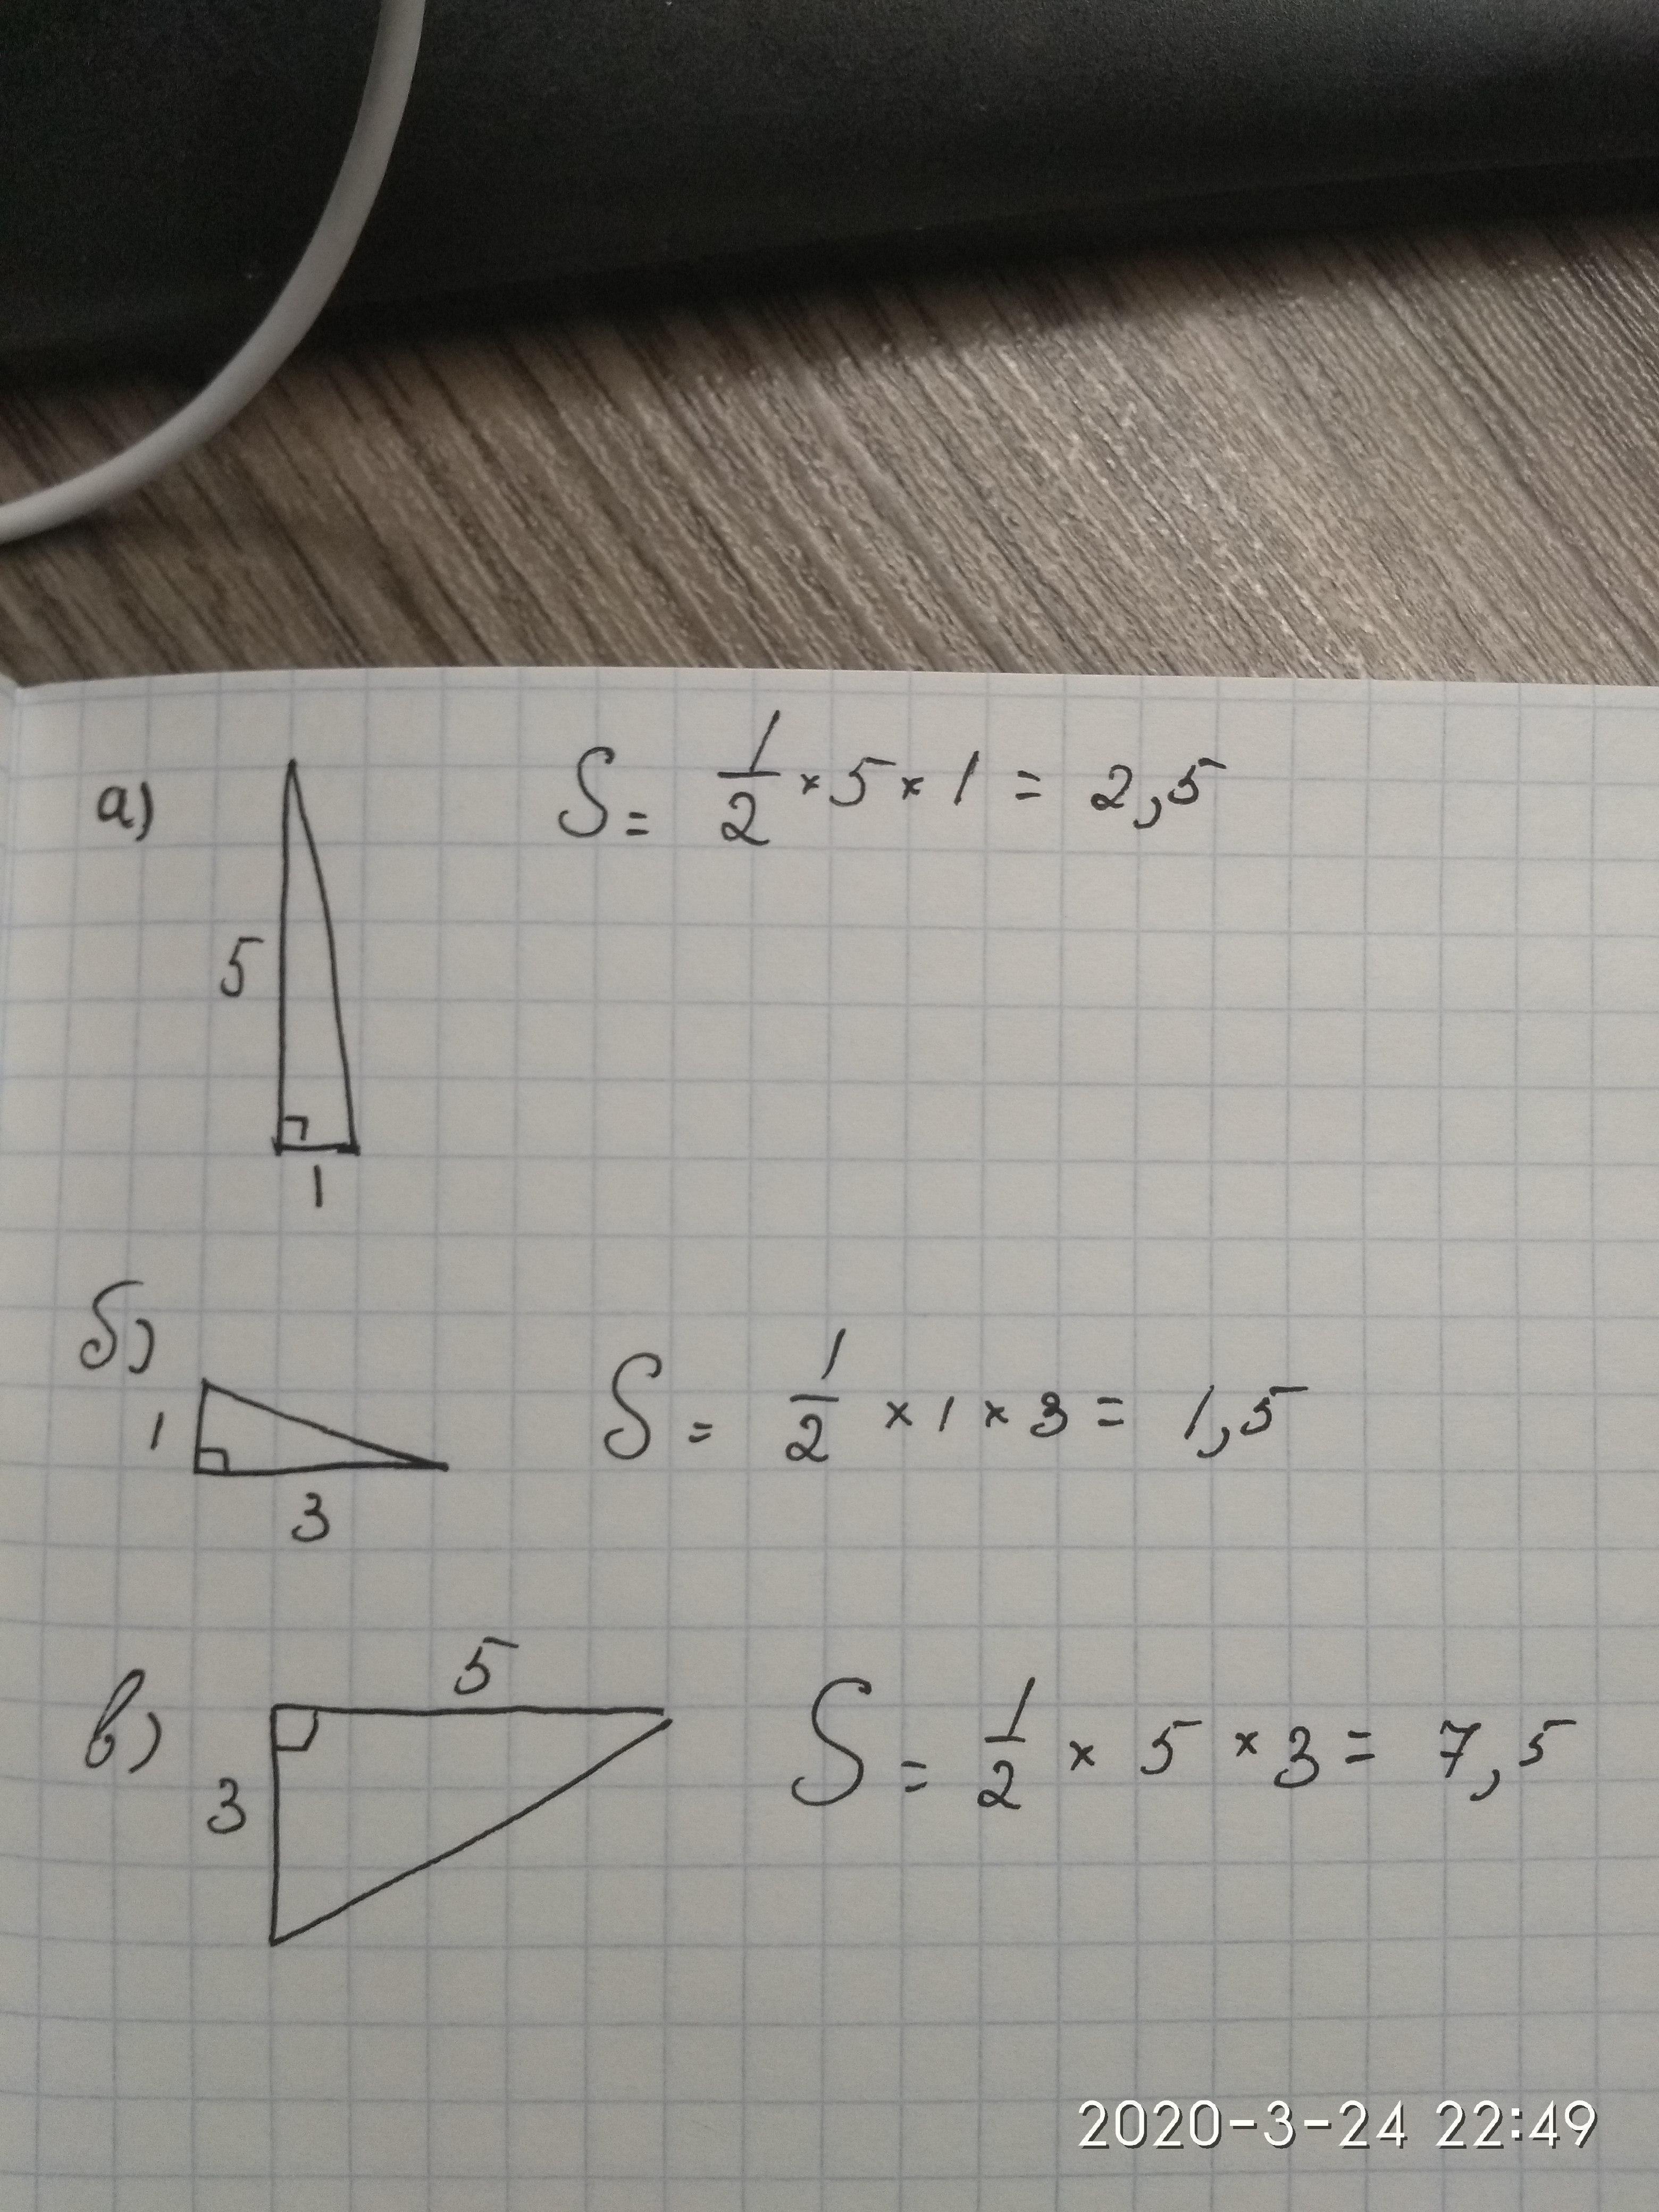 а) S = 1/2 × 5 × 1 = 2,5
5
1
б)
1 S = 1/2 × 1 × 3 = 1,5
3
5
в) S = 1/2 × 5 × 3 = 7,5
3
2020-3-24 22:49